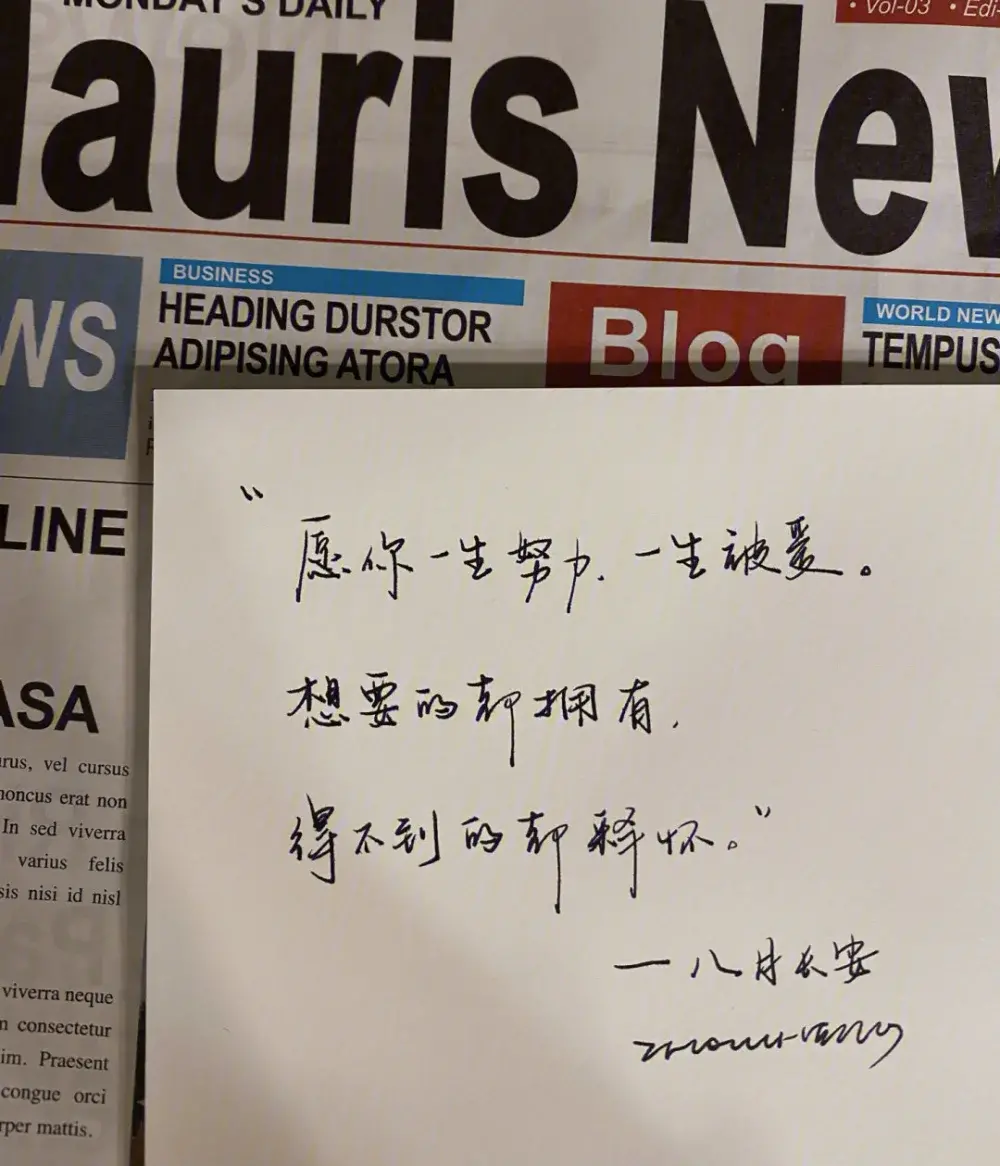 MONDAY'S DAILY
• Vol-03 • Edi-
auris New
WS
BUSINESS
HEADING DURSTOR
ADIPISING ATORA
Blog
WORLD NEW
TEMPUS
LINE
ASA
rus, vel cursus
honcus erat non
In sed viverra
varius felis
sis nisi id nisl
viverra neque
n consectetur
im. Praesent
congue orci
rper mattis.
“愿你一生努力,一生被爱。
想要的都拥有,
得不到的都释怀。”
—八月长安